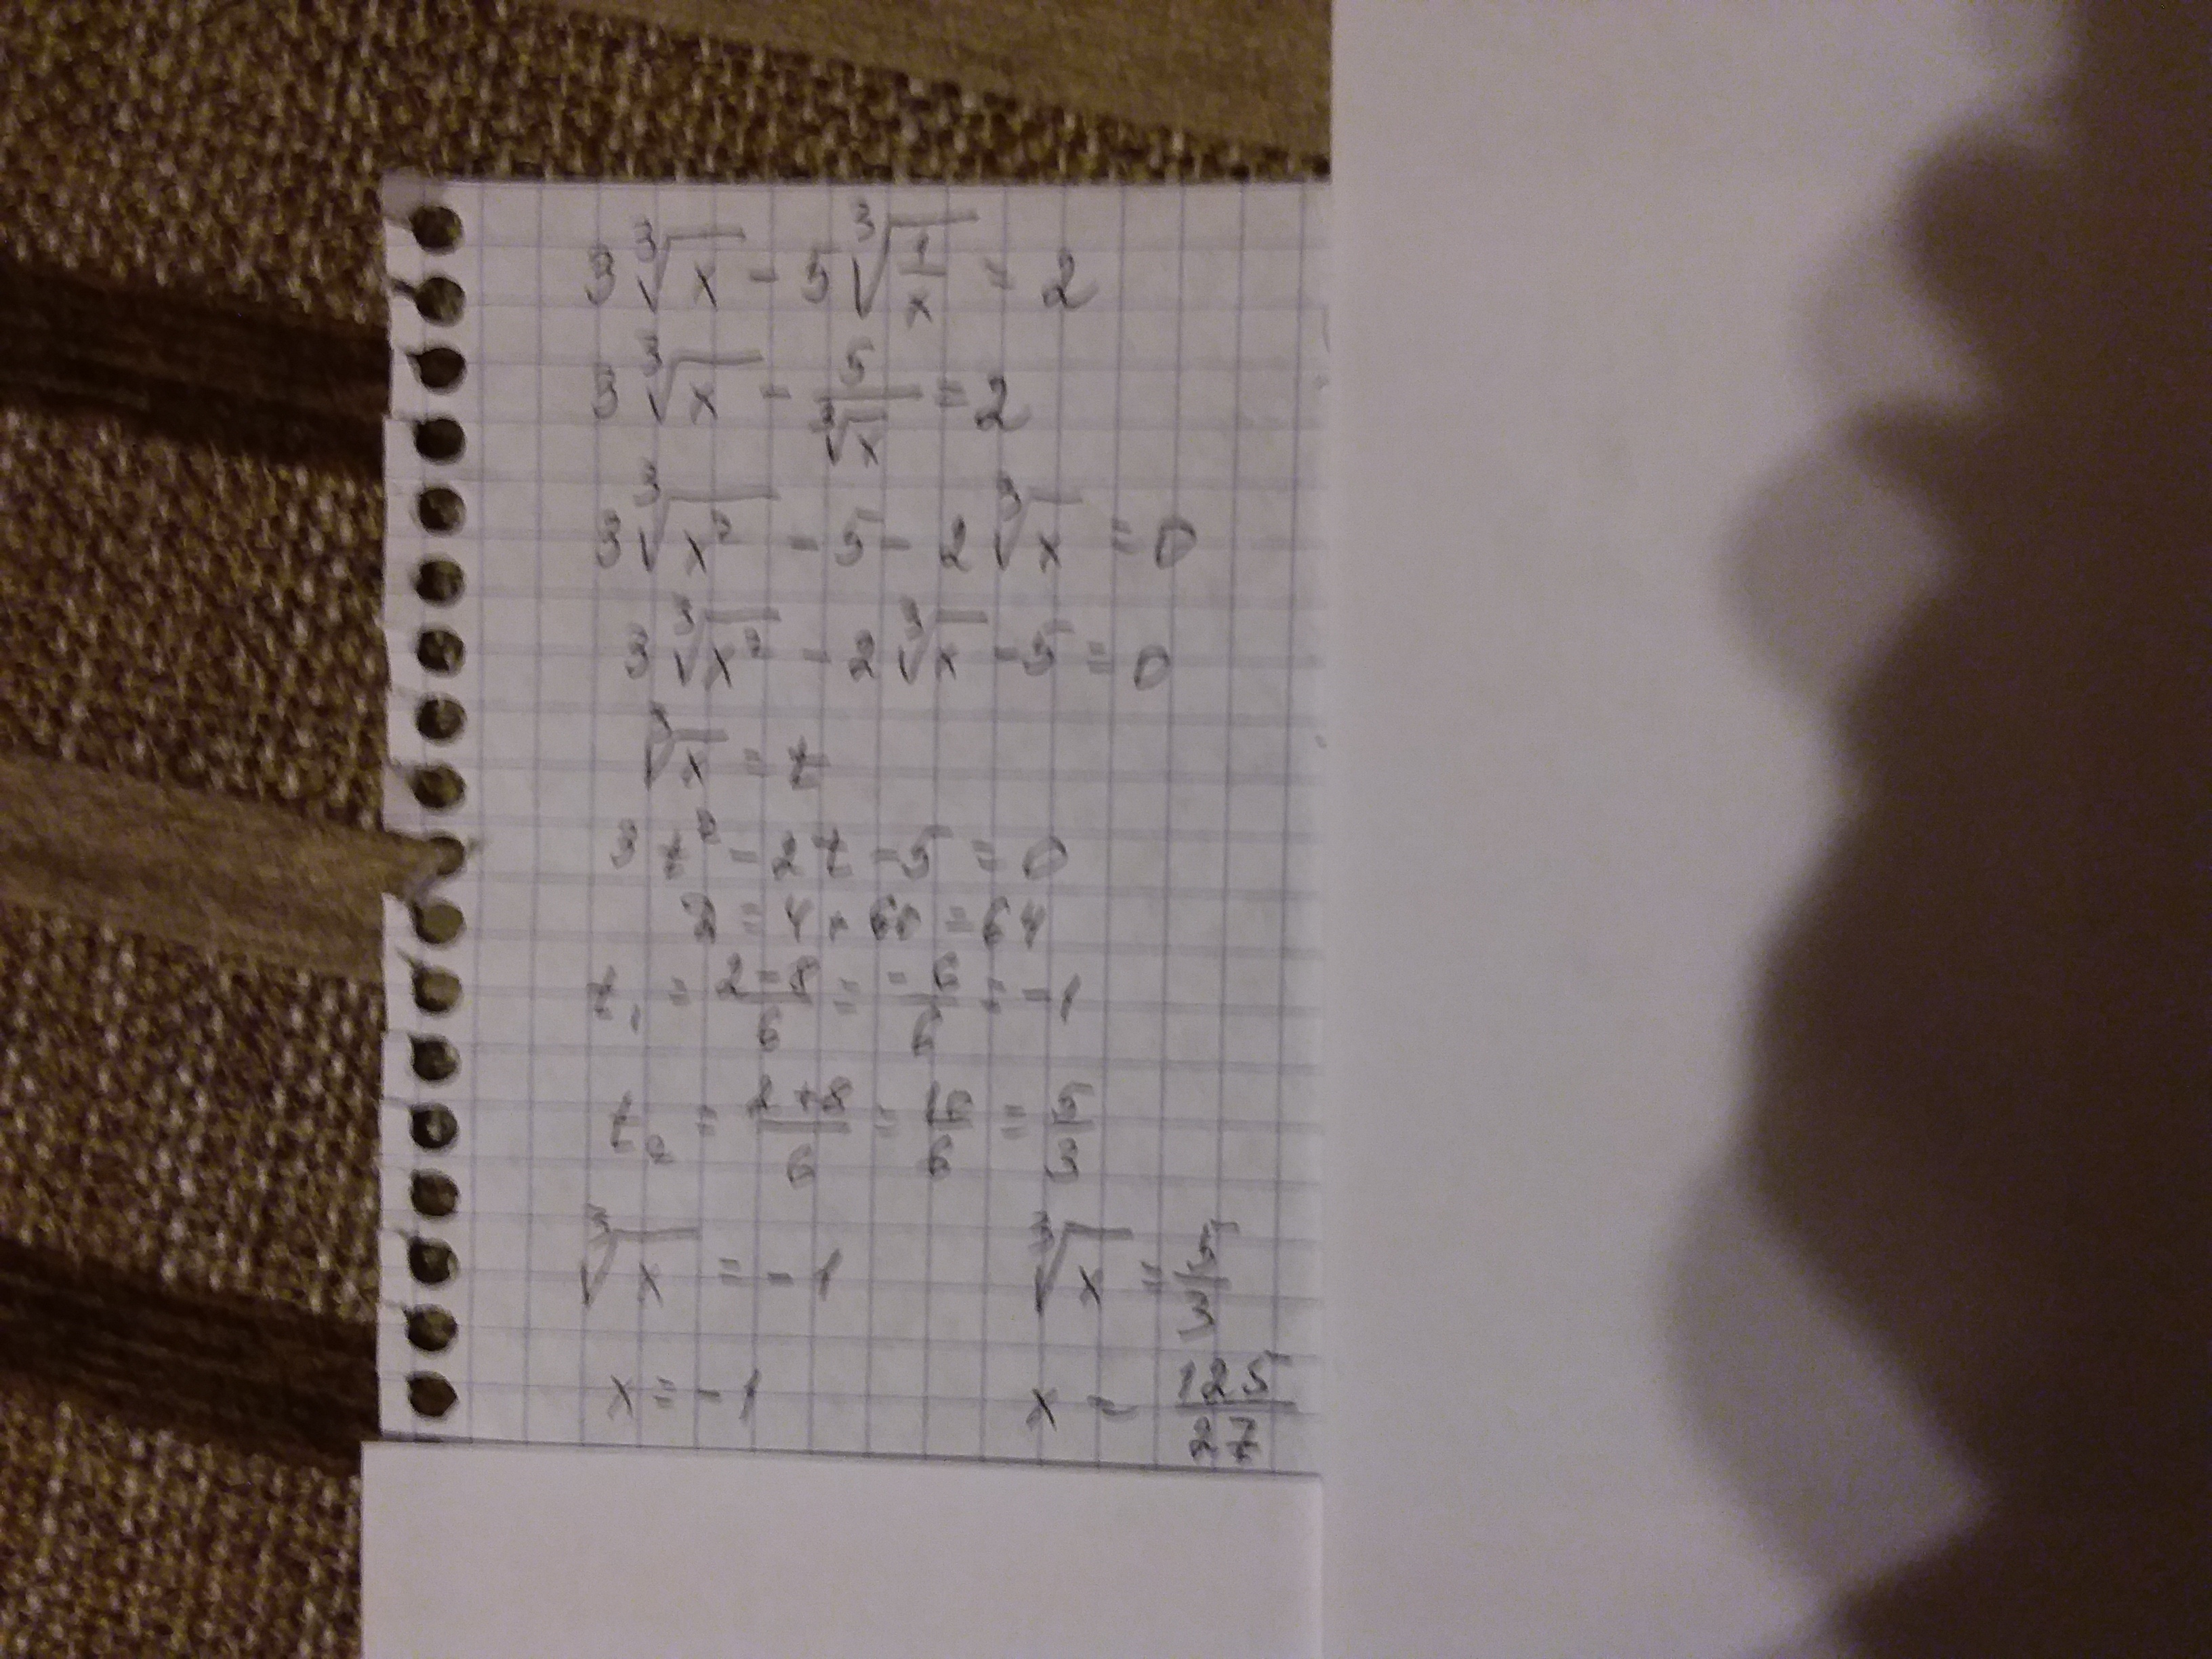 3∛x - 5∛(1/x) = 2
3∛x - 5/∛x = 2
3∛x² - 5 - 2∛x = 0
3∛x² - 2∛x - 5 = 0
∛x = t
3t² - 2t - 5 = 0
D = 4 + 60 = 64
t₁ = (2-8)/6 = -6/6 = -1
t₂ = (2+8)/6 = 10/6 = 5/3
∛x = -1 ∛x = 5/3
x = -1 x = 125/27